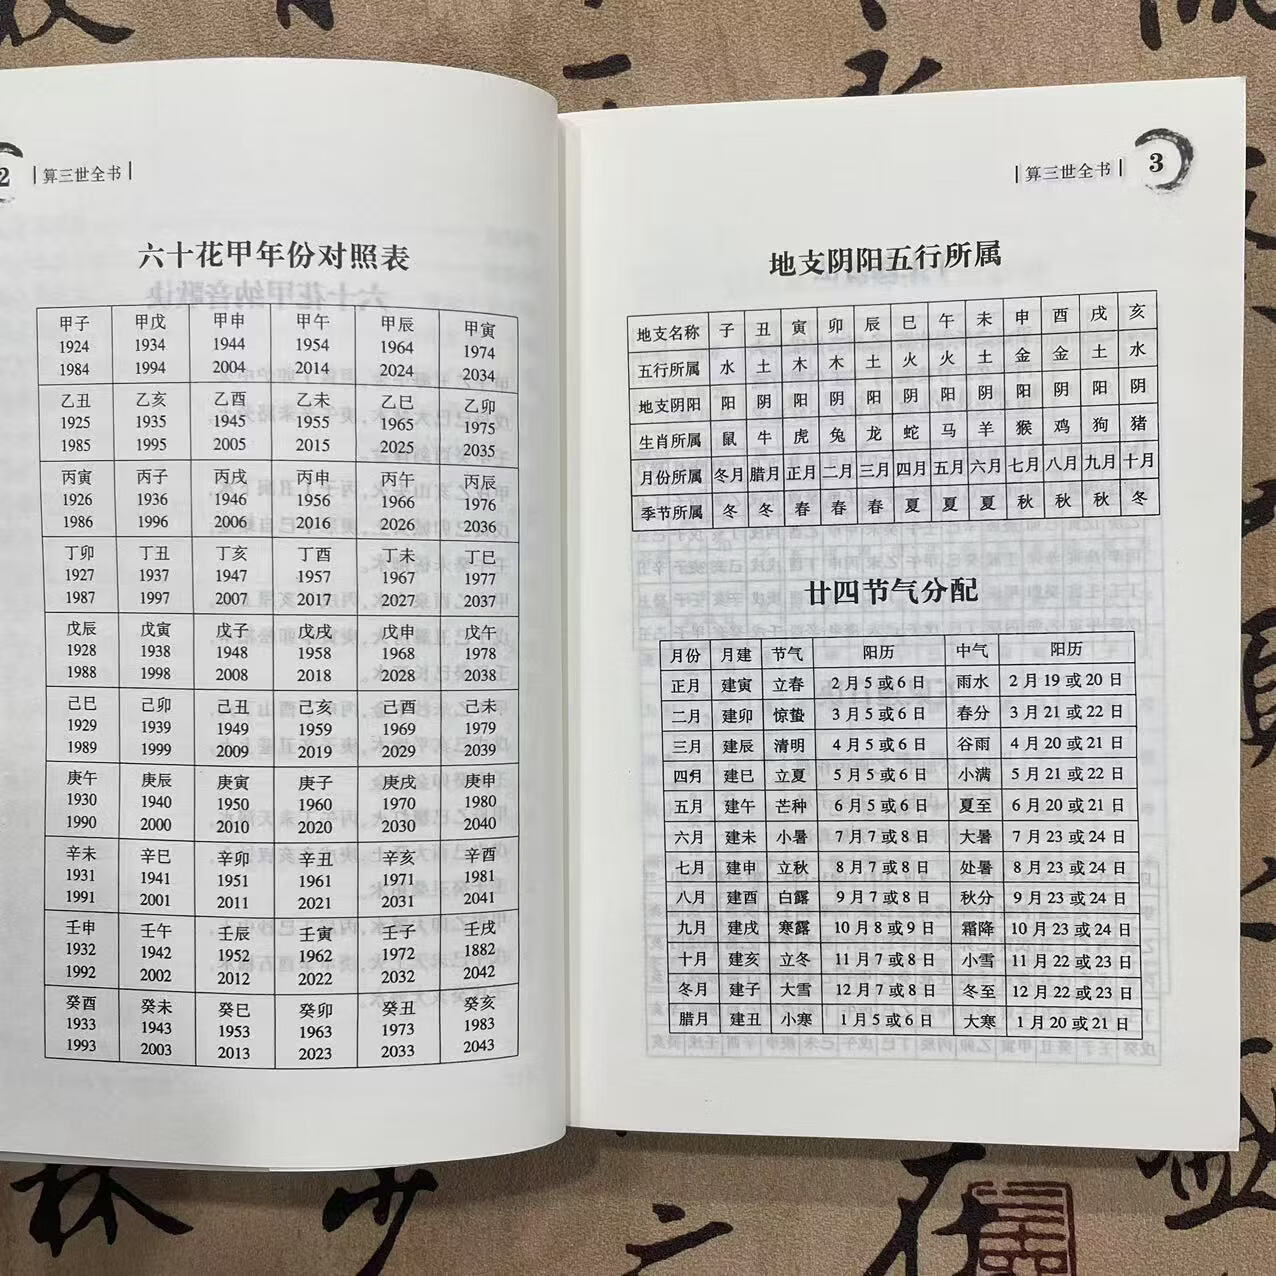 2 算三世全书
六十花甲年份对照表
甲子 甲戌 甲申 甲午 甲辰 甲寅
1924 1934 1944 1954 1964 1974
1984 1994 2004 2014 2024 2034
乙丑 乙亥 乙酉 乙未 乙巳 乙卯
1925 1935 1945 1955 1965 1975
1985 1995 2005 2015 2025 2035
丙寅 丙子 丙戌 丙申 丙午 丙辰
1926 1936 1946 1956 1966 1976
1986 1996 2006 2016 2026 2036
丁卯 丁丑 丁亥 丁酉 丁未 丁巳
1927 1937 1947 1957 1967 1977
1987 1997 2007 2017 2027 2037
戊辰 戊寅 戊子 戊戌 戊申 戊午
1928 1938 1948 1958 1968 1978
1988 1998 2008 2018 2028 2038
己巳 己卯 己丑 己亥 己酉 己未
1929 1939 1949 1959 1969 1979
1989 1999 2009 2019 2029 2039
庚午 庚辰 庚寅 庚子 庚戌 庚申
1930 1940 1950 1960 1970 1980
1990 2000 2010 2020 2030 2040
辛未 辛巳 辛卯 辛丑 辛亥 辛酉
1931 1941 1951 1961 1971 1981
1991 2001 2011 2021 2031 2041
壬申 壬午 壬辰 壬寅 壬子 壬戌
1932 1942 1952 1962 1972 1882
1992 2002 2012 2022 2032 2042
癸酉 癸未 癸巳 癸卯 癸丑 癸亥
1933 1943 1953 1963 1973 1983
1993 2003 2013 2023 2033 2043
算三世全书 3
地支阴阳五行所属
地支名称 子 丑 寅 卯 辰 巳 午 未 申 酉 戌 亥
五行所属 水 土 木 木 土 火 火 土 金 金 土 水
地支阴阳 阳 阴 阳 阴 阳 阴 阳 阴 阳 阴 阳 阴
生肖所属 鼠 牛 虎 兔 龙 蛇 马 羊 猴 鸡 狗 猪
月份所属 冬月 腊月 正月 二月 三月 四月 五月 六月 七月 八月 九月 十月
季节所属 冬 冬 春 春 春 夏 夏 夏 秋 秋 秋 冬
廿四节气分配
月份 月建 节气 阳历 中气 阳历
正月 建寅 立春 2月5或6日 雨水 2月19或20日
二月 建卯 惊蛰 3月5或6日 春分 3月21或22日
三月 建辰 清明 4月5或6日 谷雨 4月20或21日
四月 建巳 立夏 5月5或6日 小满 5月21或22日
五月 建午 芒种 6月5或6日 夏至 6月20或21日
六月 建未 小暑 7月7或8日 大暑 7月23或24日
七月 建申 立秋 8月7或8日 处暑 8月23或24日
八月 建酉 白露 9月7或8日 秋分 9月23或24日
九月 建戌 寒露 10月8或9日 霜降 10月23或24日
十月 建亥 立冬 11月7或8日 小雪 11月22或23日
冬月 建子 大雪 12月7或8日 冬至 12月22或23日
腊月 建丑 小寒 1月5或6日 大寒 1月20或21日